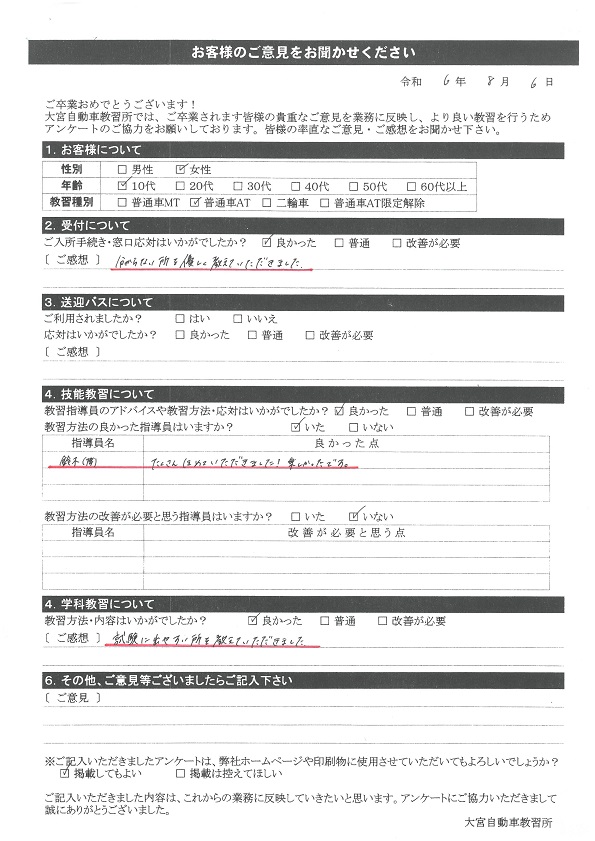 お客様のご意見をお聞かせください
令和 6 年 8 月 6 日
ご卒業おめでとうございます！
大宮自動車教習所では、ご卒業されます皆様の貴重なご意見を業務に反映し、より良い教習を行うため
アンケートのご協力をお願いしております。皆様の率直なご意見・ご感想をお聞かせ下さい。
1. お客様について
性別 □ 男性 ☑ 女性
年齢 ☑ 10代 □ 20代 □ 30代 □ 40代 □ 50代 □ 60代以上
教習種別 □ 普通車MT ☑ 普通車AT □ 二輪車 □ 普通車AT限定解除
2. 受付について
ご入所手続き・窓口応対はいかがでしたか？ ☑ 良かった □ 普通 □ 改善が必要
〔 ご感想 〕 分からない所を優しく教えていただきました。
3. 送迎バスについて
ご利用されましたか？ □ はい □ いいえ
応対はいかがでしたか？ □ 良かった □ 普通 □ 改善が必要
〔 ご感想 〕
4. 技能教習について
教習指導員のアドバイスや教習方法・応対はいかがでしたか？ ☑ 良かった □ 普通 □ 改善が必要
教習方法の良かった指導員はいますか？ ☑ いた □ いない
指導員名 良かった点
鈴木 たくさんほめていただきました！楽しかったです。
教習方法の改善が必要と思う指導員はいますか？ □ いた ☑ いない
指導員名 改善が必要と思う点
4. 学科教習について
教習方法・内容はいかがでしたか？ ☑ 良かった □ 普通 □ 改善が必要
〔 ご感想 〕 試験に出やすい所を教えていただきました。
6. その他、ご意見等ございましたらご記入下さい
〔 ご意見 〕
※ご記入いただきましたアンケートは、弊社ホームページや印刷物に使用させていただいてもよろしいでしょうか？
☑ 掲載してもよい □ 掲載は控えてほしい
ご記入いただきました内容は、これからの業務に反映していきたいと思います。アンケートにご協力いただきまして
誠にありがとうございました。
大宮自動車教習所